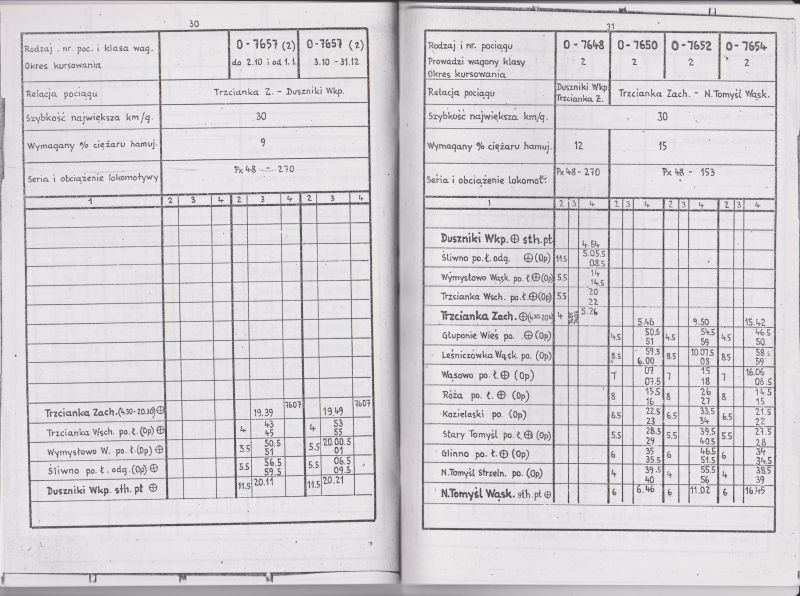 30
Rodzaj, nr. poc. i klasa wag. O-7657 (2) O-7657 (2)
Okres kursowania do 2.10 i od 1.1. 3.10 - 31.12
Relacja pociągu Trzcianka Z. - Duszniki Wkp.
Szybkość największa km/g. 30
Wymagany % ciężaru hamuj. 9
Seria i obciążenie lokomotywy Px 48 - 270
1 2 3 4 2 3 4 2 3 4
Trzcianka Zach. (4.30-20.30) ⊕ 19.39 7607 19.49 7607
Trzcianka Wsch. po.ł. (Op) 4 43 4 53
45 55
Wymysłowo W. po.ł. (Op) ⊕ 5.5 50.5 5.5 20.00.5
51 01
Śliwno po ł. odg. (Op) ⊕ 5.5 56.5 5.5 06.5
59.5 09.5
Duszniki Wkp. sth. pt ⊕ 11.5 20.11 11.5 20.21
31
Rodzaj i nr. pociągu O-7648 O-7650 O-7652 O-7654
Prowadzi wagony klasy 2 2 2 2
Okres kursowania
Relacja pociągu Duszniki Wkp. Trzcianka Z. Trzcianka Zach. - N.Tomyśl Wąsk.
Szybkość największa km/g. 30
Wymagany % ciężaru hamuj. 12 15
Seria i obciążenie lokomot. Px 48-270 Px 48 - 153
1 2 3 4 2 3 4 2 3 4 2 3 4
Duszniki Wkp. ⊕ sth. pt. 4 54
Śliwno po. ł. odg. ⊕ (Op) 11.5 5.05.5
08.5
Wymysłowo Wąsk. po. ł. ⊕ (Op) 5.5 14
14.5
Trzcianka Wsch. po. ł. ⊕ (Op) 5.5 20
22
Trzcianka Zach. ⊕ (4.30-20.30) 4 5.26 5.46 9.50 15.42
Głuponie Wieś po. ⊕ (Op) 4.5 50.5 4.5 54.5 4.5 46.5
51 59 50
Leśniczówka Wąsk. po. (Op) 8.5 59.5 8.5 10.07.5 8.5 58.5
6.00 08 59
Wąsowo po ł. ⊕ (Op) 7 07 7 15 7 16.06
07.5 18 06.5
Róża po ł. ⊕ (Op) 8 15.5 8 26 8 14.5
16 27 15
Kozielaski po (Op) 6.5 22.5 6.5 33.5 6.5 21.5
23 34 22
Stary Tomyśl po ł. ⊕ (Op) 5.5 28.5 5.5 39.5 5.5 27.5
29 40.5 28
Glinno po ł. ⊕ (Op) 6 35 6 46.5 6 34
35.5 51.5 34.5
N.Tomyśl Strzeln. po. (Op) 4 39.5 4 55.5 4 38.5
40 56 39
N.Tomyśl Wąsk. sth. pt ⊕ 6 6.46 6 11.02 6 16.45